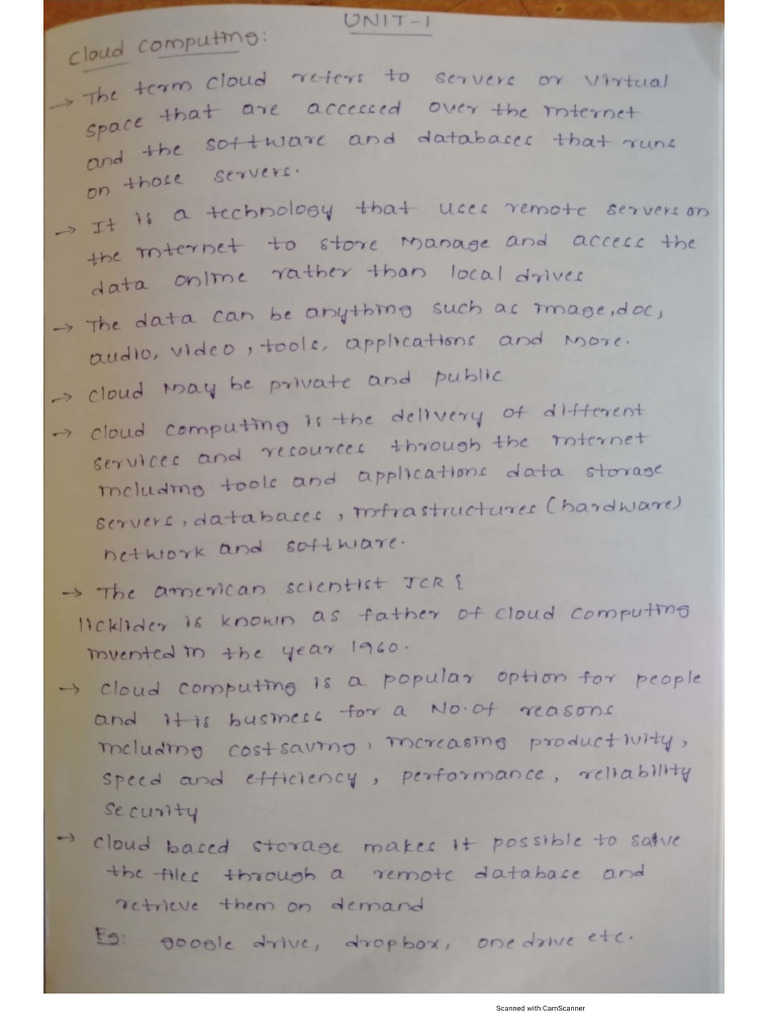 UNIT-1
Cloud Computing:
→ The term cloud refers to servers or virtual
space that are accessed over the internet
and the software and databases that runs
on those servers.
→ It is a technology that uses remote servers on
the internet to store manage and access the
data online rather than local drives
→ The data can be anything such as image, doc,
audio, video, tools, applications and more.
→ cloud may be private and public
→ cloud computing is the delivery of different
services and resources through the internet
including tools and applications data storage
servers, databases, infrastructures (hardware)
network and software.
→ The american scientist JCR {
licklider is known as father of cloud computing
invented in the year 1960.
→ cloud computing is a popular option for people
and it is business for a No. of reasons
including cost saving, increasing productivity,
speed and efficiency, performance, reliability
security
→ cloud based storage makes it possible to save
the files through a remote database and
retrieve them on demand
Eg: google drive, dropbox, one drive etc.
Scanned with CamScanner